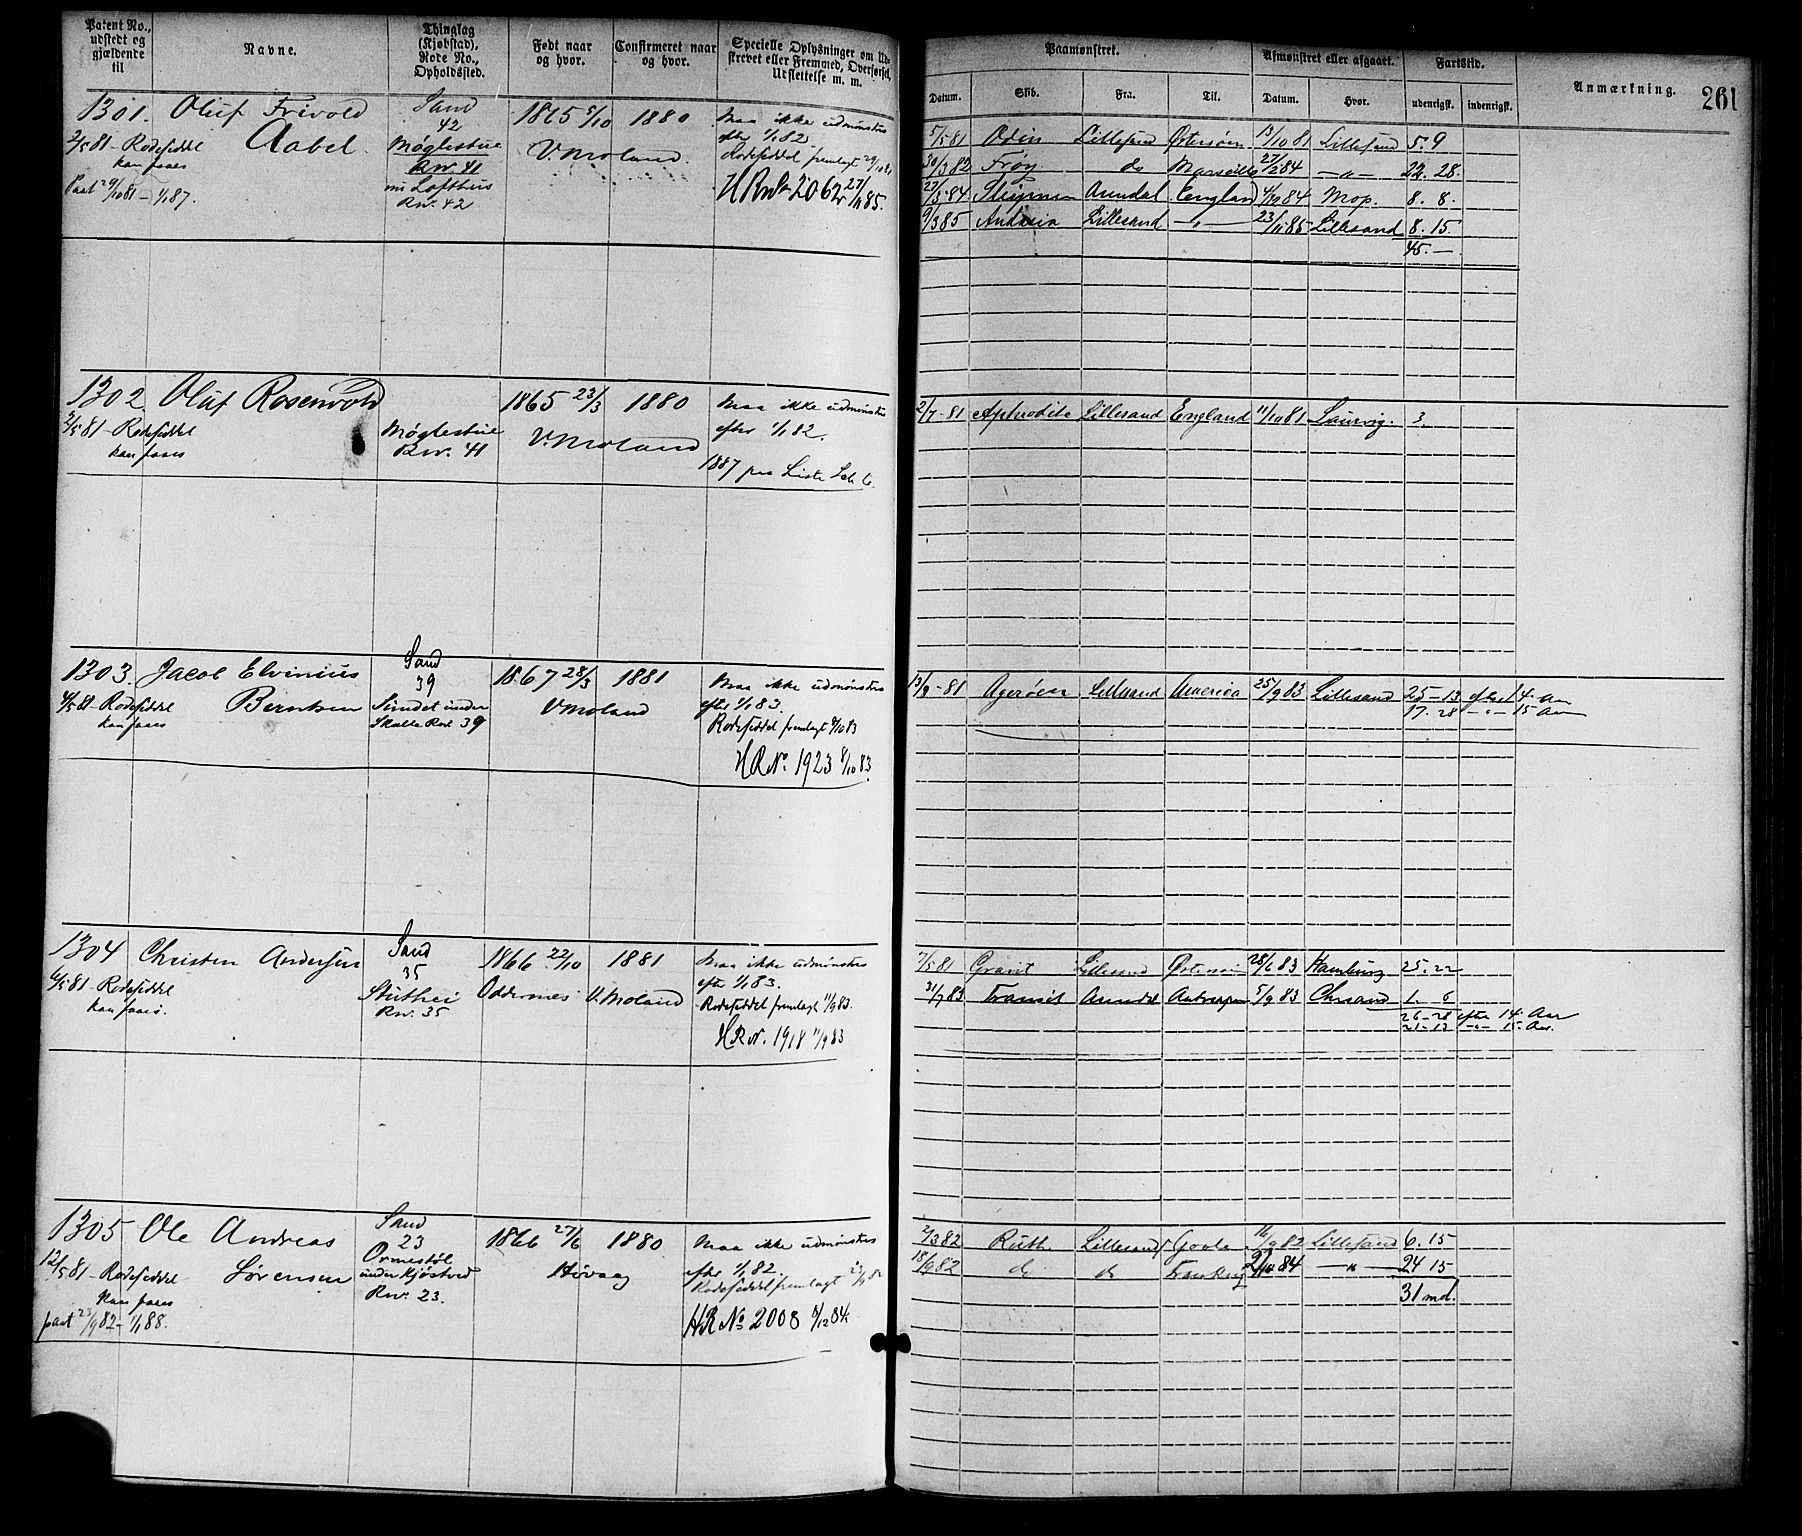 Patent No., udstedt og gjældende til
Navne.
Thinglag (Kjøbstad), Rode No., Opholdssted.
Født naar og hvor.
Confirmeret naar og hvor.
Specielle Oplysninger om Udskrevet eller Fremmed, Overførsel, Udslettelse m. m.
Paamønstret.
Afmønstret eller afgaaet.
Fartstid.
Anmærkning.
261
Datum.
Skib.
Fra.
Til.
Datum.
Hvor.
udenrigst.
indenrigst.
1301. Oluf Frivold
Aabel.
2/5 81 - Rodeseddel
kan faaes
Pat 29/10 81 - 1/1 87.
Sand
42
Møglestue
Rno. 41
nu Lofthus
Rno. 42
1865 5/10
1880
V. Moland.
Maa ikke udmønstres
efter 1/1 82
Rodeseddel fremlagt
HRNo 2062 27/11 85.
5/5 81 Odin Lillesand Østersøen 13/10 81 Lillesand 5. 9
30/3 82 Frøy do Marseille 27/2 84 -"- 22. 28.
27/3 84 Arendal England 4/11 84 Mop. 8. 8.
9/3 85 Lillesand -"- 23/11 85 Lillesand 8. 15
45. -
1302. Oluf Rosenvold
2/5 81 - Rodeseddel
kan faaes
Møglestue
Rno. 41
1865 23/3
1880
V. Moland
Maa ikke udmønstres
efter 1/1 82.
1887 paa Liste Litr. C.
2/7 - 81 Aphrodite Lillesand England 11/10 81 Laurvig. 3.
1303. Jacob Elvinius
Berntsen
4/5 81 - Rodeseddel
kan faaes
Sand
39
Sundet under
Skalle Rode 39
1867 28/3
1881
V. Moland
Maa ikke udmønstres
efter 1/1 83.
Rodeseddel fremlagt 8/10 83
HRNo. 1923 8/10 83.
13/9 - 81 Agerøen Lillesand America 25/9 83 Lillesand 25 - 13 efter 14. Aar
17. 28 -"- 15 Aar
1304 Christen Andersen
6/5 81 - Rodeseddel
kan faaes.
Sand
35
Stuthei
Rno. 35
1866 22/10
Oddernes
1881
V. Moland
Maa ikke udmønstres
efter 1/1 83.
Rodeseddel fremlagt 11/9 83.
HRN. 1918 11/9 83
7/5 81 Gravit Lillesand Østersøen 28/6 83 Hamburg 25. 22
31/7 83 Transit Arendal Antwerpen 5/9 83 Chrsand 1. 6
26 - 28 efter 14. Aar
21 - 13 -"- 15. Aar.
1305 Ole Andreas
Sørensen
12/5 81 - Rodeseddel
kan faaes
pat 23/9 82 - 1/1 88.
Sand
23
Ormestøl
under Kjøstved
Rno. 23.
1866 27/6
1880
Høvaag
Maa ikke udmønstres
efter 1/1 82.
Rodeseddel fremlagt
HRNo 2008 8/12 84.
2/3 82 Ruth Lillesand 11/9 82 Lillesand 6. 15
18/9 82 do do 84 -"- 24 15
31 md.